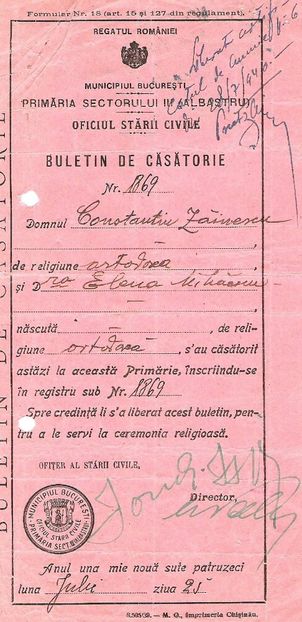 Formular Nr. 18 (art. 15 și 127 din regulament).
REGATUL ROMÂNIEI
MUNICIPIUL BUCUREȘTI
PRIMĂRIA SECTORULUI III (ALBASTRU)
OFICIUL STĂRII CIVILE
BULETIN DE CĂSĂTORIE
Nr. 1869
Domnul Constantin
de religiune ortodoxă
și D ra Elena
născută — de reli-
giune ortodoxă, s'au căsătorit
astăzi la această Primărie, înscriindu-se
în registru sub Nr. 1869
Spre credință li s'a liberat acest buletin, pen-
tru a le servi la ceremonia religioasă.
OFIȚER AL STĂRII CIVILE,
Director,
MUNICIPIUL BUCUREȘTI
OFICIUL STARII CIVILE
PRIMĂRIA SECT. III ALBASTRU
Anul una mie nouă sute patruzeci
luna Iulie ziua 25
BULETIN DE CĂSĂTORIE
M. O., Imprimeria Chișinău.